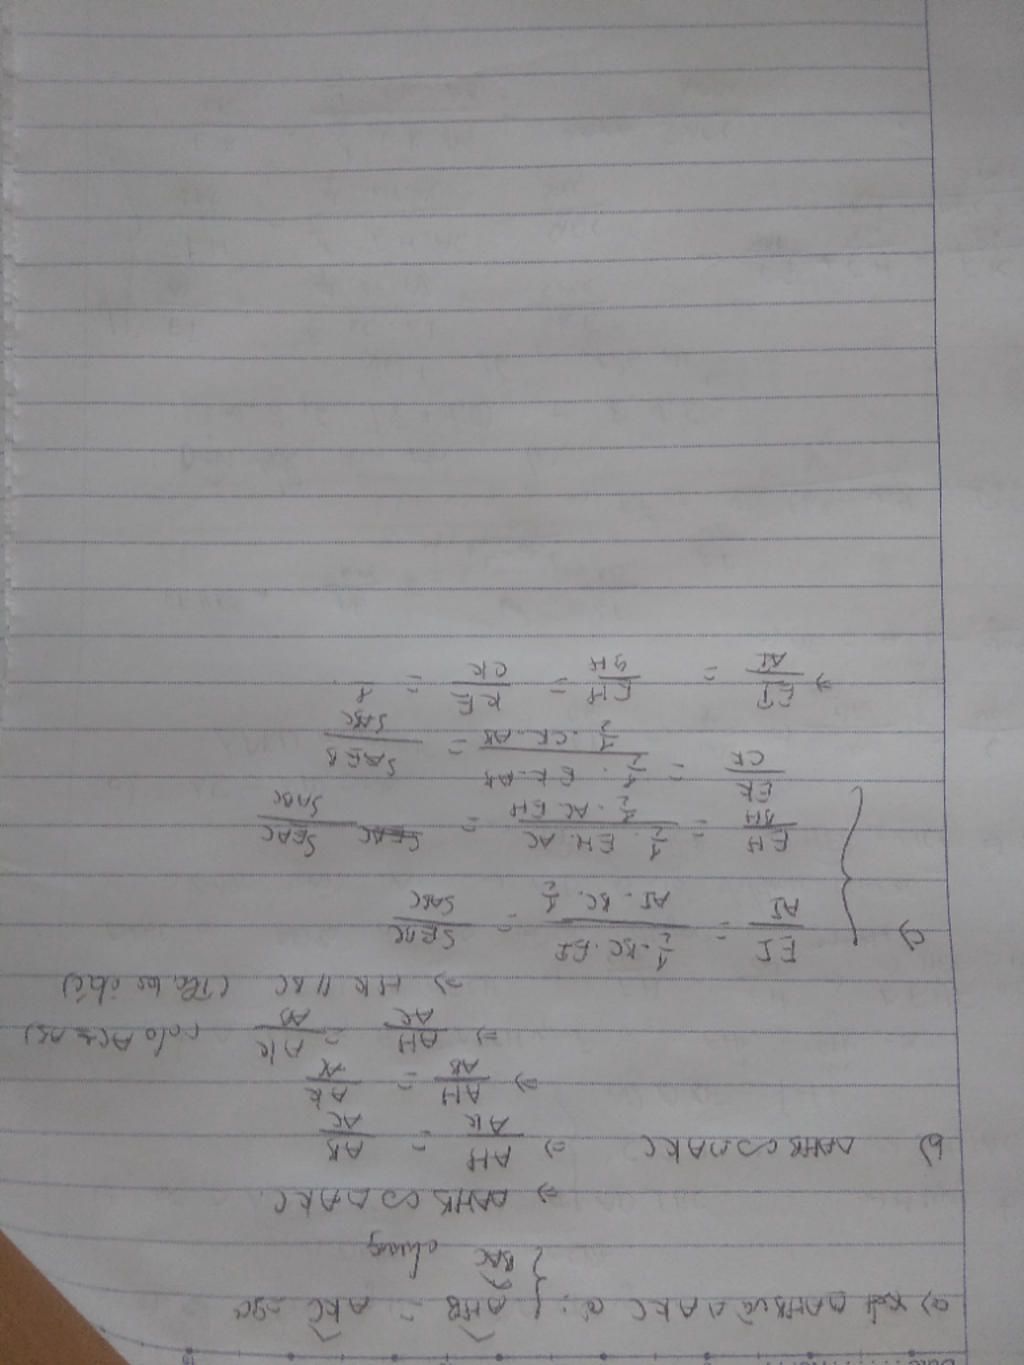 a) Xét △AHB và △AKC có: { AHB = AKC = 90
BAC chung
⇒ △AHB ∽ △AKC
b) △AHB ∽ △AKC ⇒ AH/AK = AB/AC
⇒ AH/AB = AK/AC
⇒ AH/AC = AK/AB (do AC = AB)
⇒ HK // BC
c) EI/AI = 1/2 . BC . EI / AI . BC . 1/2 = SEBC/SABC
EH/BH = 1/2 . EH . AC / 1/2 . AC . BH = SEAC/SABC
EK/CK = 1/2 . EK . AB / 1/2 . CK . AB = SAEB/SABC
⇒ EI/AI = EH/BH = KE/CK = 1